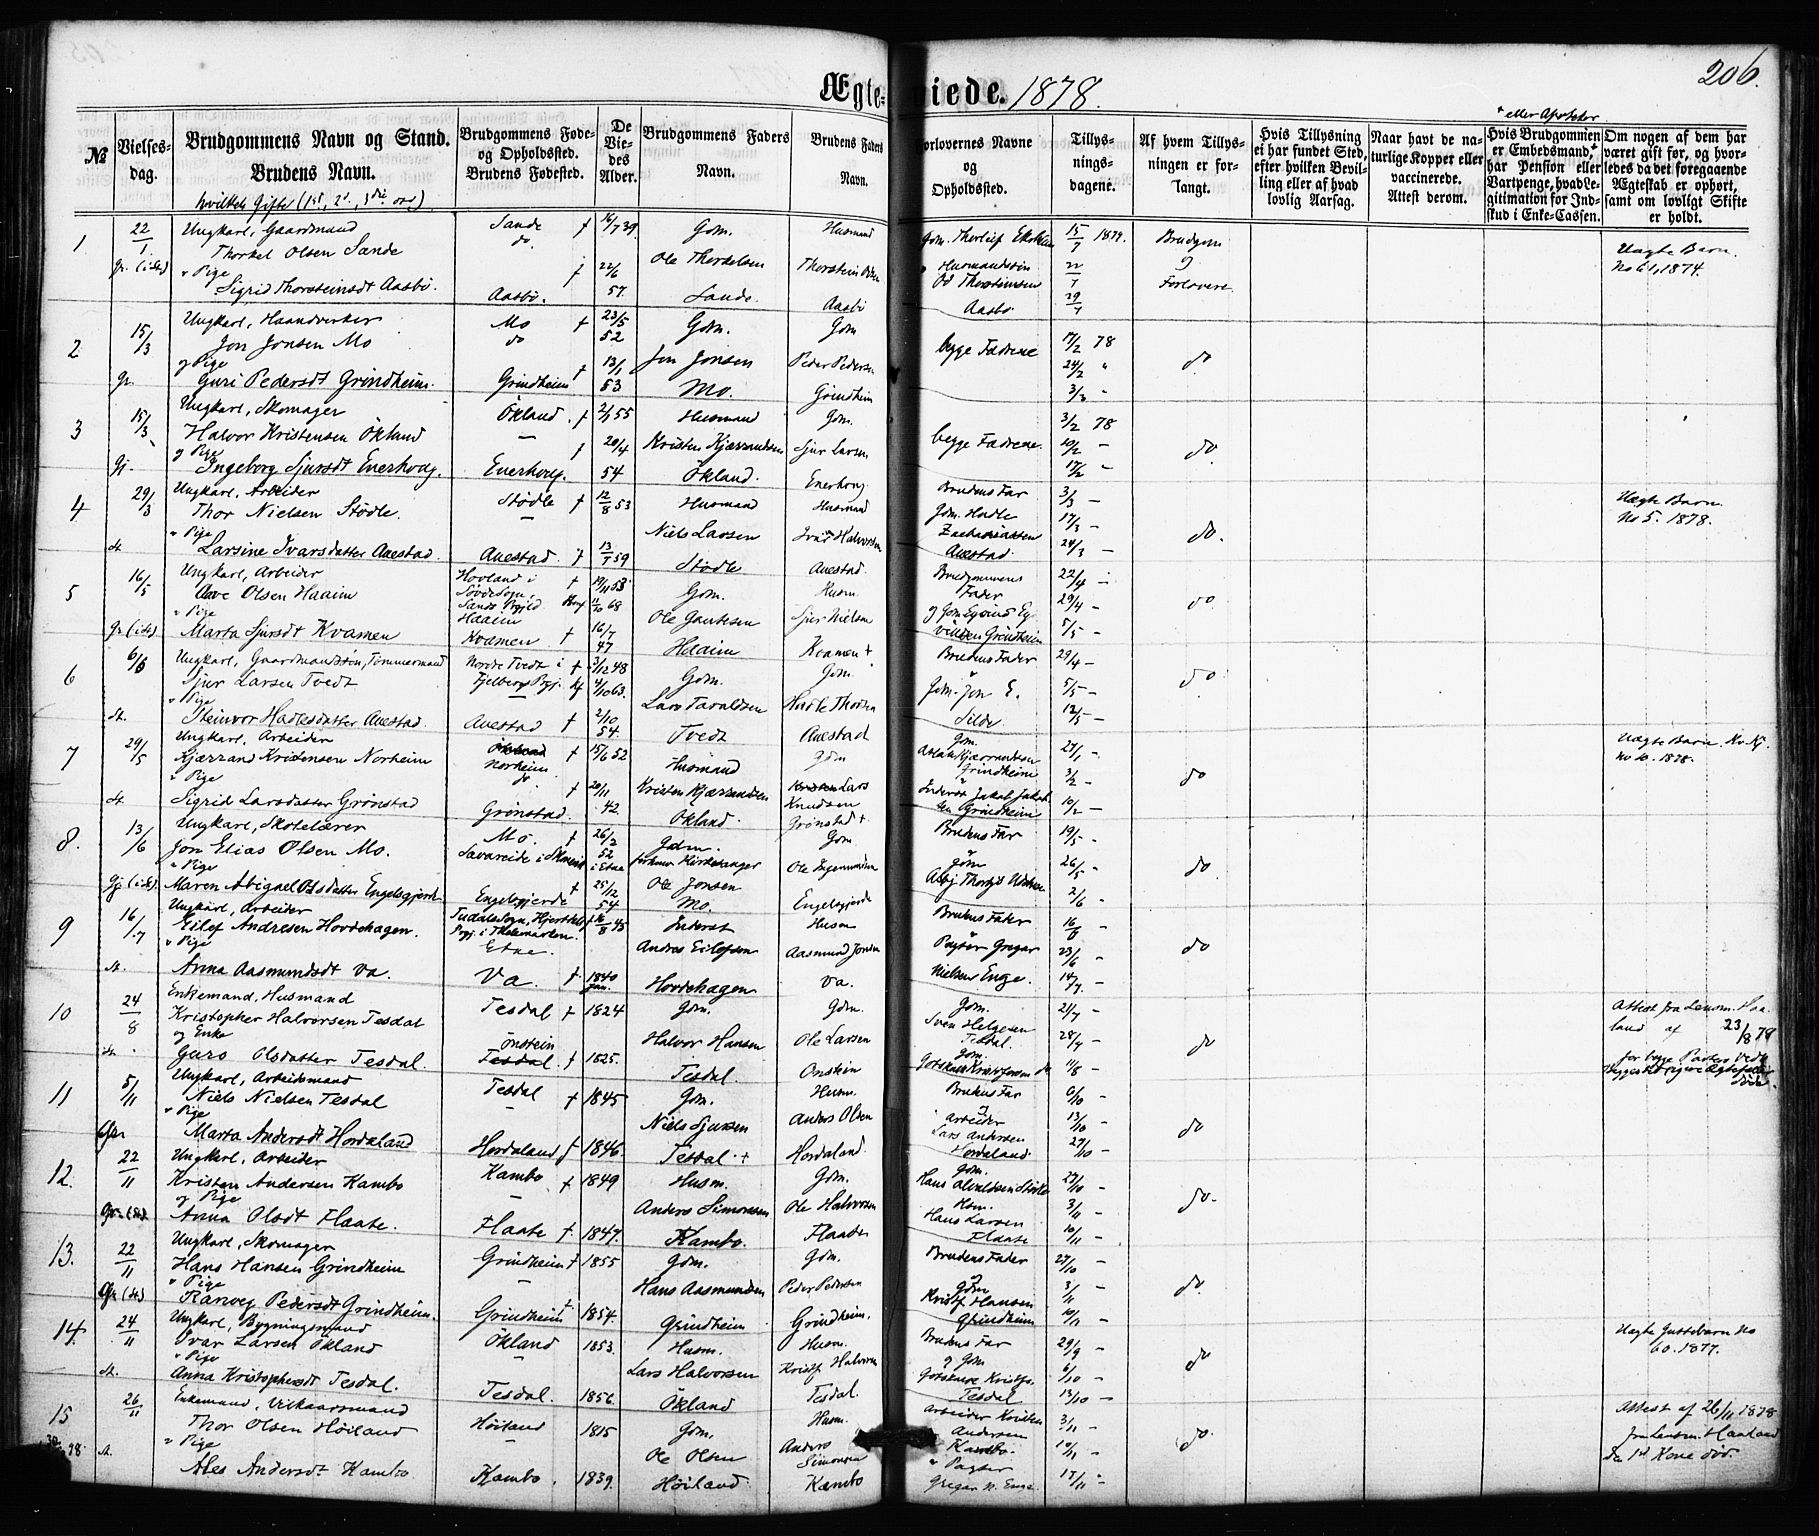 206.
Ægteviede. 1878.
+ eller Apotheker
№
Vielses-dag.
Brudgommens Navn og Stand.
Brudens Navn.
hvilket Gifte (1st, 2d, 3die osv)
Brudgommens Føde- og Opholdssted.
Brudens Fødested.
De Viedes Alder.
Brudgommens Faders Navn.
Brudens Faders Navn.
Forlovernes Navne og Opholdssted.
Tillysningsdagene.
Af hvem Tillysningen er forlangt.
Hvis Tillysning ei har fundet Sted, efter hvilken Bevilling eller af hvad lovlig Aarsag.
Naar havt de naturlige Kopper eller vaccinerede. Attest derom.
Hvis Brudgommen er Embedsmand, + har Pension eller Vartpenge, hvad Legitimation for Indskud i Enke-Cassen.
Om nogen af dem har været gift før, og hvorledes da det foregaaende Ægteskab er ophørt, samt om lovligt Skifte er holdt.
1 22/1 Ungkarl, Gaardmand Sande † 16/7 39. Gdm. Husmand Gdm. Thorleif 15/1 1879. Brudgom Uægte Barn
Thorkel Olsen Sande do. Ole Thorkelsen Thorstein No 61, 1874.
" Pige Husmandssøn 22/1 og
Sigrid Thorsteinsdt Aasbø. Aasbø. 22/6 57. Sande. Aasbø Od Thorsteinsen Aasbø 29/1 Forlovere
2 15/3 Ungkarl, Haandverker Mo † 23/5 52 Gdm. Gdm begge Fædrene 17/2 78 do
Jon Jonsen Mo do Jon Jonsen Peder Pedersen 24/2 "
og Pige
Gr. Guri Pedersdt Grindheim. Grindheim † 13/1 53 Mo. Grindheim 3/3 -
3 15/3 Ungkarl, Skomager Ökland. † 2/1 55 Husmand Gdm. begge Fædrene. 3/2 78 do
Halvor Kristensen Ökland Kristen Kjærrandsen Sjur Larsen 10/2 -
og Pige
Ingeborg Sjursdt Enerhoug. Enerhoug. 20/4 54 Ökland. Enerhoug 17/2 -
4 29/3 Ungkarl, Arbeider Stödle † 12/8 53 Husmand Husmand Brudens Far 3/3 - do. Uægte Barn
Thor Nielsen Stödle. Niels Larsen Ivar Halvorsen Gdm. Hadle 17/3 - No 5. 1878.
" Pige
st. Larsine Ivarsdatter Auestad. Auestad. † 13/1 59 Stödle Auestad Auestad 24/3 -
5 16/5 Ungkarl, Arbeider Hovland i † 19/11 53 Gdm. Husm. Brudgommens Fader 22/4 - do.
Aave Olsen Haaim Søvdesogn, Sands Prgjld 11/10 68 Ole Gautesen Sjur Nielsen 29/4 -
" Pige Haaim
Gr. (i st.) Marta Sjursdt Kvamen Kvamen † 16/7 47 Haaim Kvamen + Grindheim 5/5 -
6 6/6 Ungkarl, Gaardmandssøn, Tømmermand Nordre Tvedt i † 3/12 48 Gdm. Gdm. Brudens Fader 29/4 - do.
Sjur Larsen Tvedt Fjelbergs Pgj. Kf 4/10 63. Lars Taraldsen Hadle Thorsen Gdm. Jon E. 5/5 -
" Pige
St. Steinvor Hadlesdatter Auestad. Auestad † 2/10 54. Tvedt Auestad Silde 12/5 -
7 29/5 Ungkarl, Arbeider Norheim † 15/6 52 Husmand Gdm Gdm. 27/1 - do Uægte Barn.
Kjærrand Kristensen Norheim do Kristen Kjærrandsen Lars Knudsen Grindheim 3/2 - No 10. 1878.
" Pige
St. Sigrid Larsdatter Grönstad Grönstad † 20/11 42. Okland. Grönstad + Inderst Jakob Jakobsen Grindheim 10/2 -
8. 13/6 Ungkarl, Skolelærer Mo. † 26/2 52 Gdm. Gdm Brudens Far 19/5 - do
Jon Elias Olsen Mo. Ole Jonsen Ole Ingemundsen Gdm 26/5 -
" Pige
Gj (i st) Maren Abigael Olsdatter Engelsgjerde. Engelsgjerde † 25/12 54 Mo. Engelsgjerde 2/6 -
9 16/7 Ungkarl, Arbeider Tudals Sogn, Hjertdals † 16/8 45 Inderst Husm Brudens Fader 16/6 - do
Eilef Andresen Hovdehagen. Pgj. i Thelemarken. Andres Eilefsen Aasmund Jonsen Pagter Gregar 23/6 -
" Pige Etne.
st. Anna Aasmundsdt Va. Va † 1840 Jan. Hovdehagen Va. Nielsen Enge. 14/7 -
10 24/8 Enkemand, Husmand Tesdal † 1824 Gdm. Gdm. Gdm. 21/7 - do Attest fra Lensm. Haaland af 23/8 78
Kristopher Halvorsen Tesdal Halvor Hansen Ole Larsen Sven Helgesen Tesdal. 28/7 -
og Enke Önstein for begge Parter
st. Guro Olsdatter Tesdal. Tesdal. † 1825. Tesdal. Onstein Gdm. 11/8 - døde.
11 5/11 Ungkarl, Arbeidsmand Tesdal † 1845 Gdm. Husm. Brudens Far 6/10 - do
Niels Nielsen Tesdal Niels Sjursen Anders Olsen og arbeider 13/10 -
" Pige
Marta Andersdt Hordaland Hordaland † 1846. Tesdal + Hordaland. Lars Andersen Hordaland 27/10 -
12. 22/11 Ungkarl, Arbeider Kambo † 1849 Husm. Gdm. Gdm. 27/10 - do.
Kristen Andersen Kambo Anders Simonsen Ole Halvorsen 3/11 -
og Pige Hsm.
Gr. (St). Anna Olsdt Flaate. Flaate † 1847. Kambo. Flaate Hans Larsen Flaate 10/11 -
13. 22/11 Ungkarl, Skomager Grindheim † 1855 Gdm. Gdm. Brudens Fader 27/10 - do
Hans Hansen Grindheim Hans Aasmundsen Peder Pedersen og Gdm 3/11 -
" Pige
Gr (St) Ranveg Pedersdt Grindheim. Grindheim † 1854. Grindheim Grindheim. Kristf Hansen Grindheim 10/11 -
14. 24/11 Ungkarl, Bygningsmand Ökland 1853. Husm. Husm. Brudens Far 29/9 - do Uægte Guttebarn No
Ivar Larsen Ökland Lars Halvorsen Kristf Halvorsen og Gdm 6/10 - 60. 1877.
" Pige
st. Anna Kristophersdt Tesdal. Tesdal. 1856. Ökland Tesdal. Tesdal 13/10 -
15 26/11 Enkemand, Vilkaarsmand Höiland 1815 Gdm. Husm. Arbeider Kristen 3/11 - do. Attest af 26/11 1878
Thor Olsen Höiland Ole Olsen Anders Simonsen Andersen Kambo. 10/11 - fra Lensm. Haaland
" Pige " Pagter
st. Ales Andersdt Kambo Kambo. 1839. Höiland Kambo Gregar N. Enge. 17/11 - 1st Kone död.